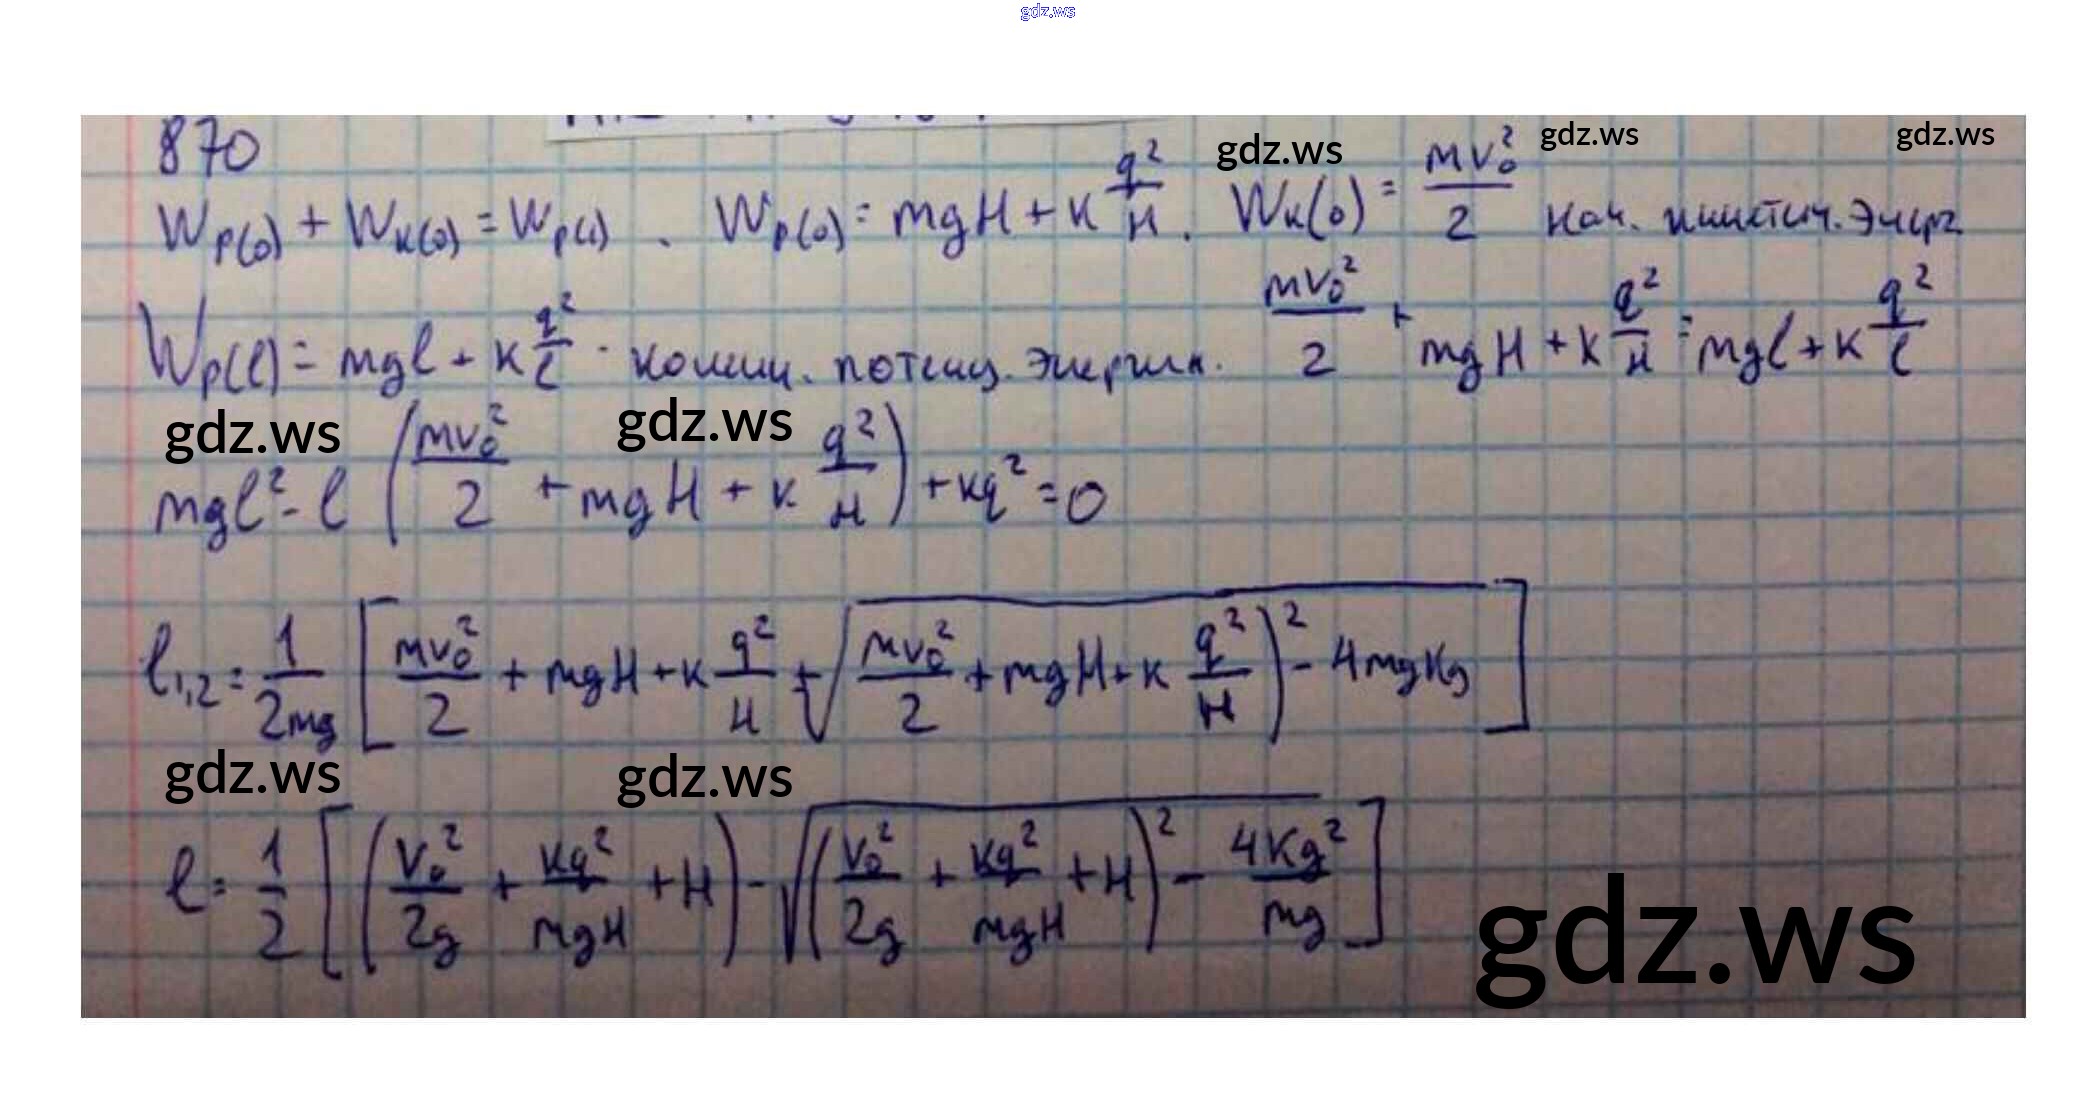 gdz.ws
870 gdz.ws gdz.ws gdz.ws
W_P(0) + W_к(0) = W_P(l) . W_P(0) = mgH + к q²/H . W_к(0) = mv₀²/2 нач. кинетич. энерг
W_P(l) = mgl + к q²/l . конечн. потенц. энергия. mv₀²/2 + mgH + к q²/H = mgl + к q²/l
gdz.ws gdz.ws
mgl² - l (mv₀²/2 + mgH + к q²/H) + кq² = 0
l₁,₂ = 1/2mg [mv₀²/2 + mgH + к q²/H ± √(mv₀²/2 + mgH + к q²/H)² - 4mgкq]
gdz.ws gdz.ws
l = 1/2 [(v₀²/2g + кq²/mgH + H) - √(v₀²/2g + кq²/mgH + H)² - 4кq²/mg]
gdz.ws